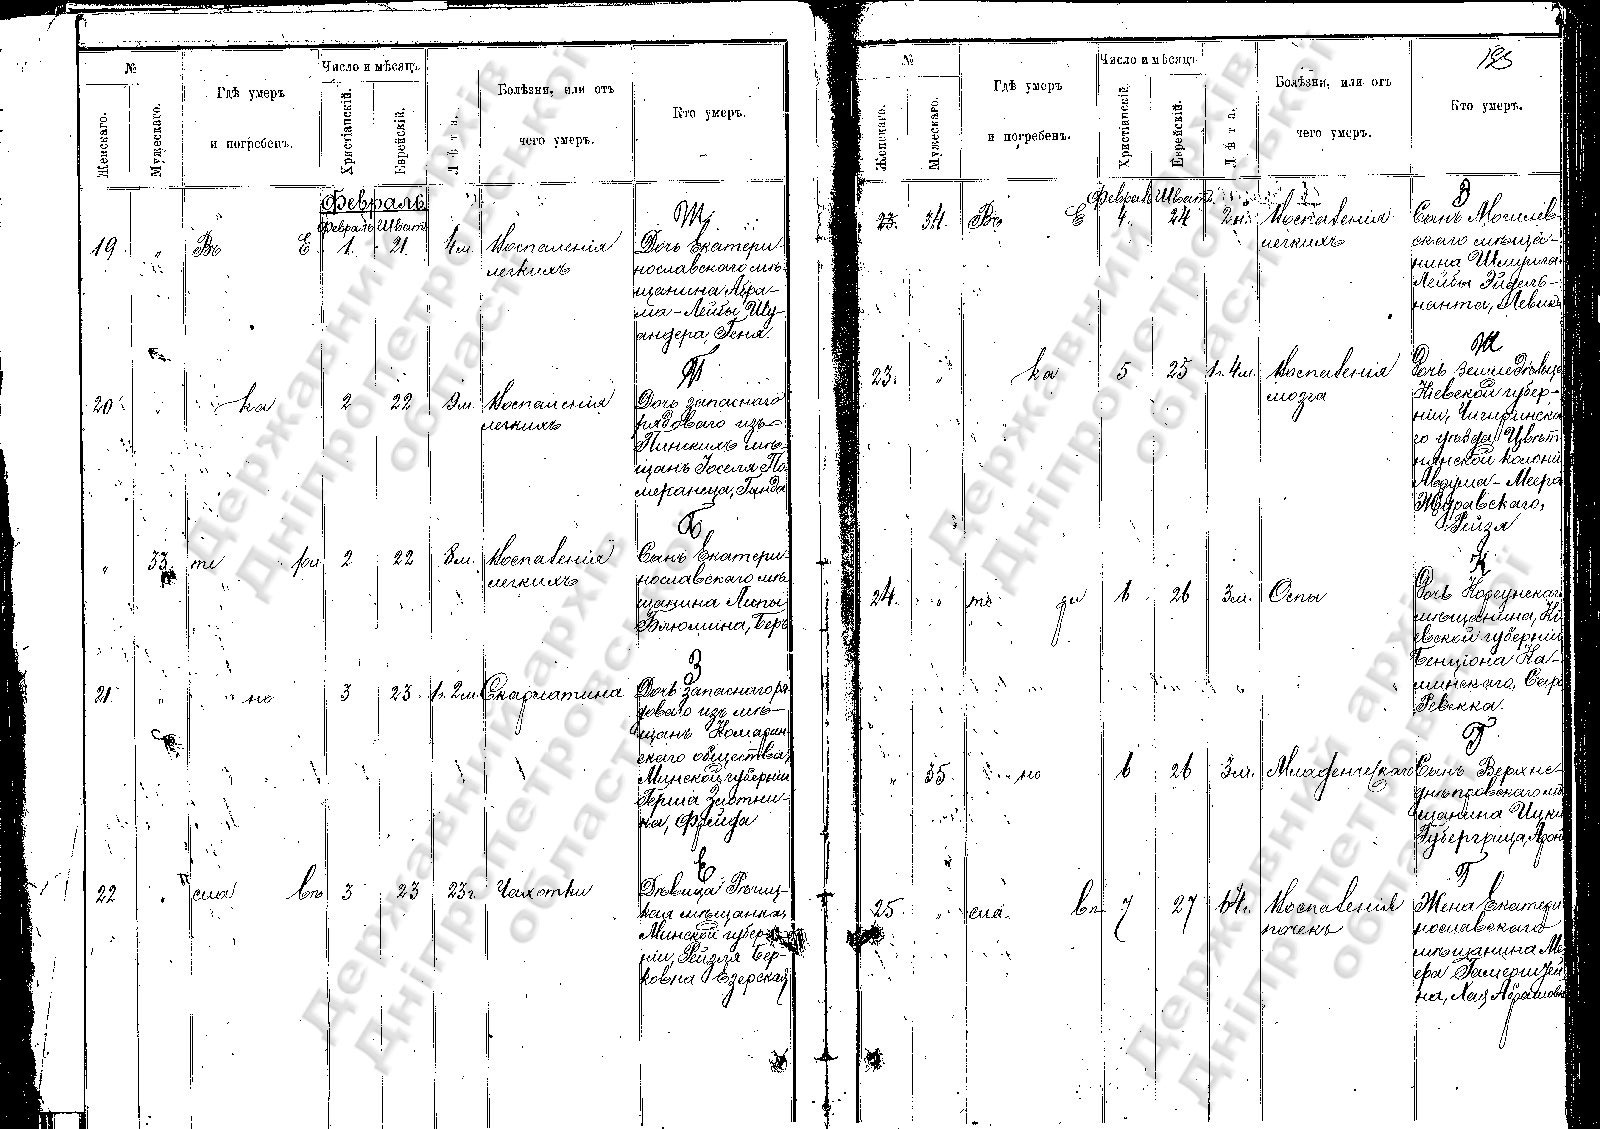 №
Число и мѣсяцъ
Женскаго.
Мужескаго.
Гдѣ умеръ
и погребенъ.
Христіанскій.
Еврейскій.
Лѣта.
Болѣзни, или отъ
чего умеръ.
Кто умеръ.
Февраль
Февраль Шватъ
19. " Въ Е 1. 21. 4 м. Воспаленія
легкихъ
Дочь Екатери-
нославскаго мѣ-
щанина Абра-
ма-Лейбы
Геня.
20 " ка 2 22 9 м. Воспаленія
легкихъ
Дочь запаснаго
рядоваго изъ
Пинскихъ мѣ-
щанъ Іоселя По-
меранца,
Б
" 33. те ри 2 22 8 м. Воспаленія
легкихъ
Сынъ Екатери-
нославскаго мѣ-
щанина Липы
Блюмина, Беръ
З
21. " но 3 23 1 г. 2 м. Скарлатина
Дочь запаснаго ря-
доваго изъ мѣ-
щанъ Комарин-
скаго общества,
Минской губерніи
Герша Злотни-
ка, Фрейда
Е
22 " сла въ 3 23 23 г. Чахотки
Дѣвица Рѣчиц-
кая мѣщанка,
Минской губер-
ніи, Рейзля Бер-
ковна Езерская
125
№
Число и мѣсяцъ
Женскаго.
Мужескаго.
Гдѣ умеръ
и погребенъ.
Христіанскій.
Еврейскій.
Лѣта.
Болѣзни, или отъ
чего умеръ.
Кто умеръ.
Февраль Шватъ
23. 34. Въ Е 4. 24 Воспаленія
легкихъ
Сынъ Могилев-
скаго мѣща-
нина Шмуила-
Лейбы
Левикъ
Ж
23. " ка 5 25 1 г. 4 м. Воспаленія
мозга
Дочь земледѣльца
Кіевской губер-
ніи, Чигиринска-
го уѣзда, Цвѣт-
нянской колоніи
Аврума-Меера
Журавскаго,
Рейзя
К
24. " те ри 6 26 3 м. Оспы
Дочь Корсунскаго
мѣщанина, Кі-
евской губерніи
Бенціона Ка-
минскаго, Сара
Ревекка.
Г
" 35. но 6 26 3 м. Младенческаго
Сынъ Верхне-
днѣпровскаго мѣ-
щанина Ицки
Губергрица, Аронъ
Г
25. " сла. въ 7 27 64 г. Воспаленія
почекъ
Жена Екатери-
нославскаго
мѣщанина Ме-
ера Гамерштей-
на, Хая Абрамовна
Державний архів
Дніпропетровської
області